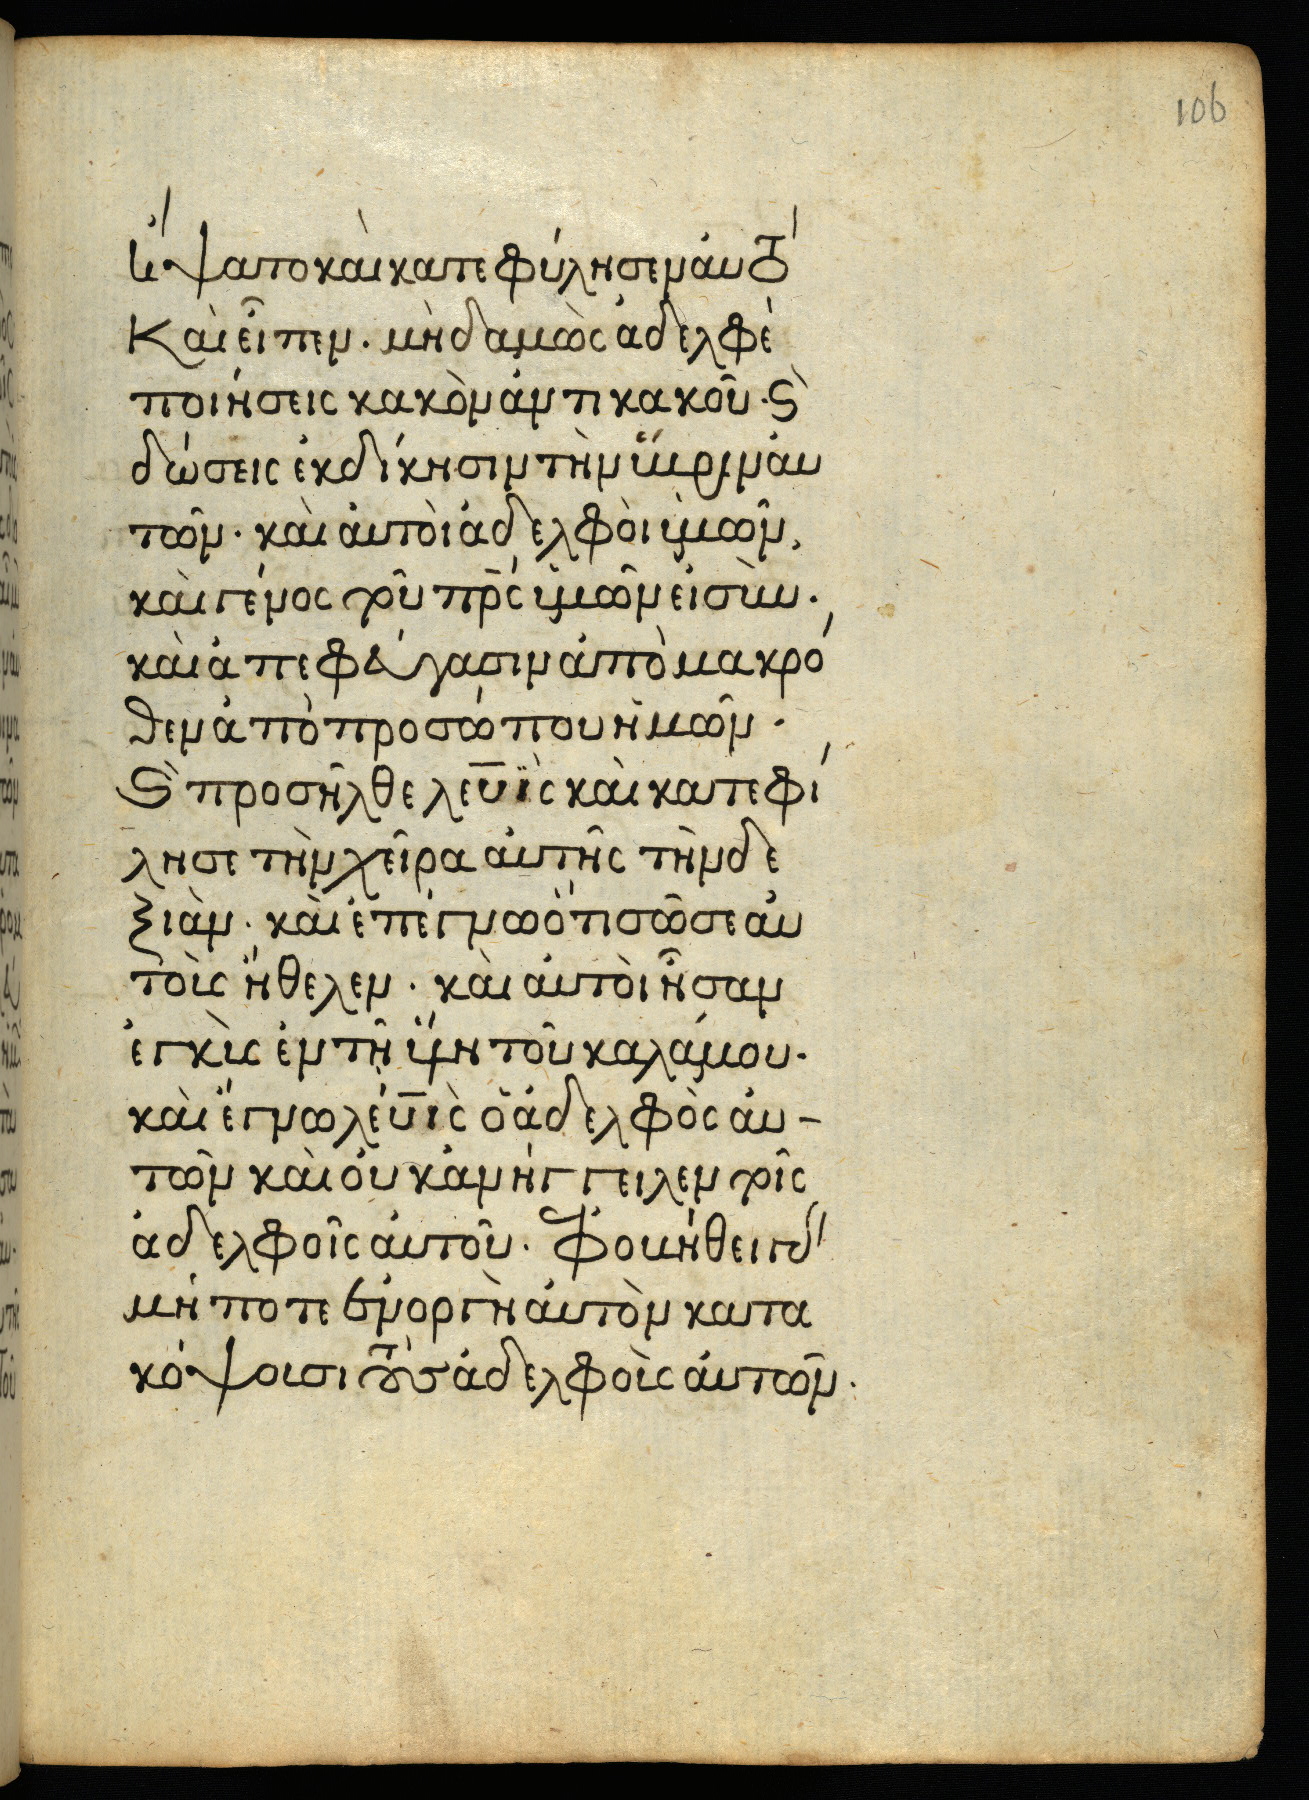 106
ἥψατο καὶ κατεφύλησεν ἀυτὸν
Καὶ εἶπεν. μὴδαμὼς ἀδελφὲ
ποιήσεις κακὸν ἀντι κακοῦ. Ϛ̀
δώσεις ἐκδίκησιν τὴν ὕβριν ἀυ
τῶν. καὶ ἀυτὸι ἀδελφὸι ὑμῶν,
καὶ γένος τοῦ πρ̅ς ὑμῶν εἰσὶν.
καὶ ἀπεφεύγασιν ἀπὸ μακρό
θεν ἀπὸ προσώπου ἡμῶν.
Ϛ̀ προσῆλθε λευῒς καὶ κατεφί
λησε τὴν χεῖρα ἀυτῆς τὴν δε
ξιὰν. καὶ ἐπέγνω ὅτι σῶσε ἀυ
τοὶς ἤθελεν. καὶ ἀυτὸι ἦσαν
ἐγκὶς ἐν τῆ ὕλη τοῦ καλάμου.
καὶ ἔγνω λέυὶς ὁ ἀδελφὸς ἀυ-
τῶν καὶ ὀυκ ἀνήγγειλεν τοῖς
ἀδελφοῖς ἀυτοῦ. Φοβήθει γὰρ
μήποτε ἐν οργὴ ἀυτὸν κατα
κόψοισι τοὺσ ἀδελφοὶς ἀυτῶν.